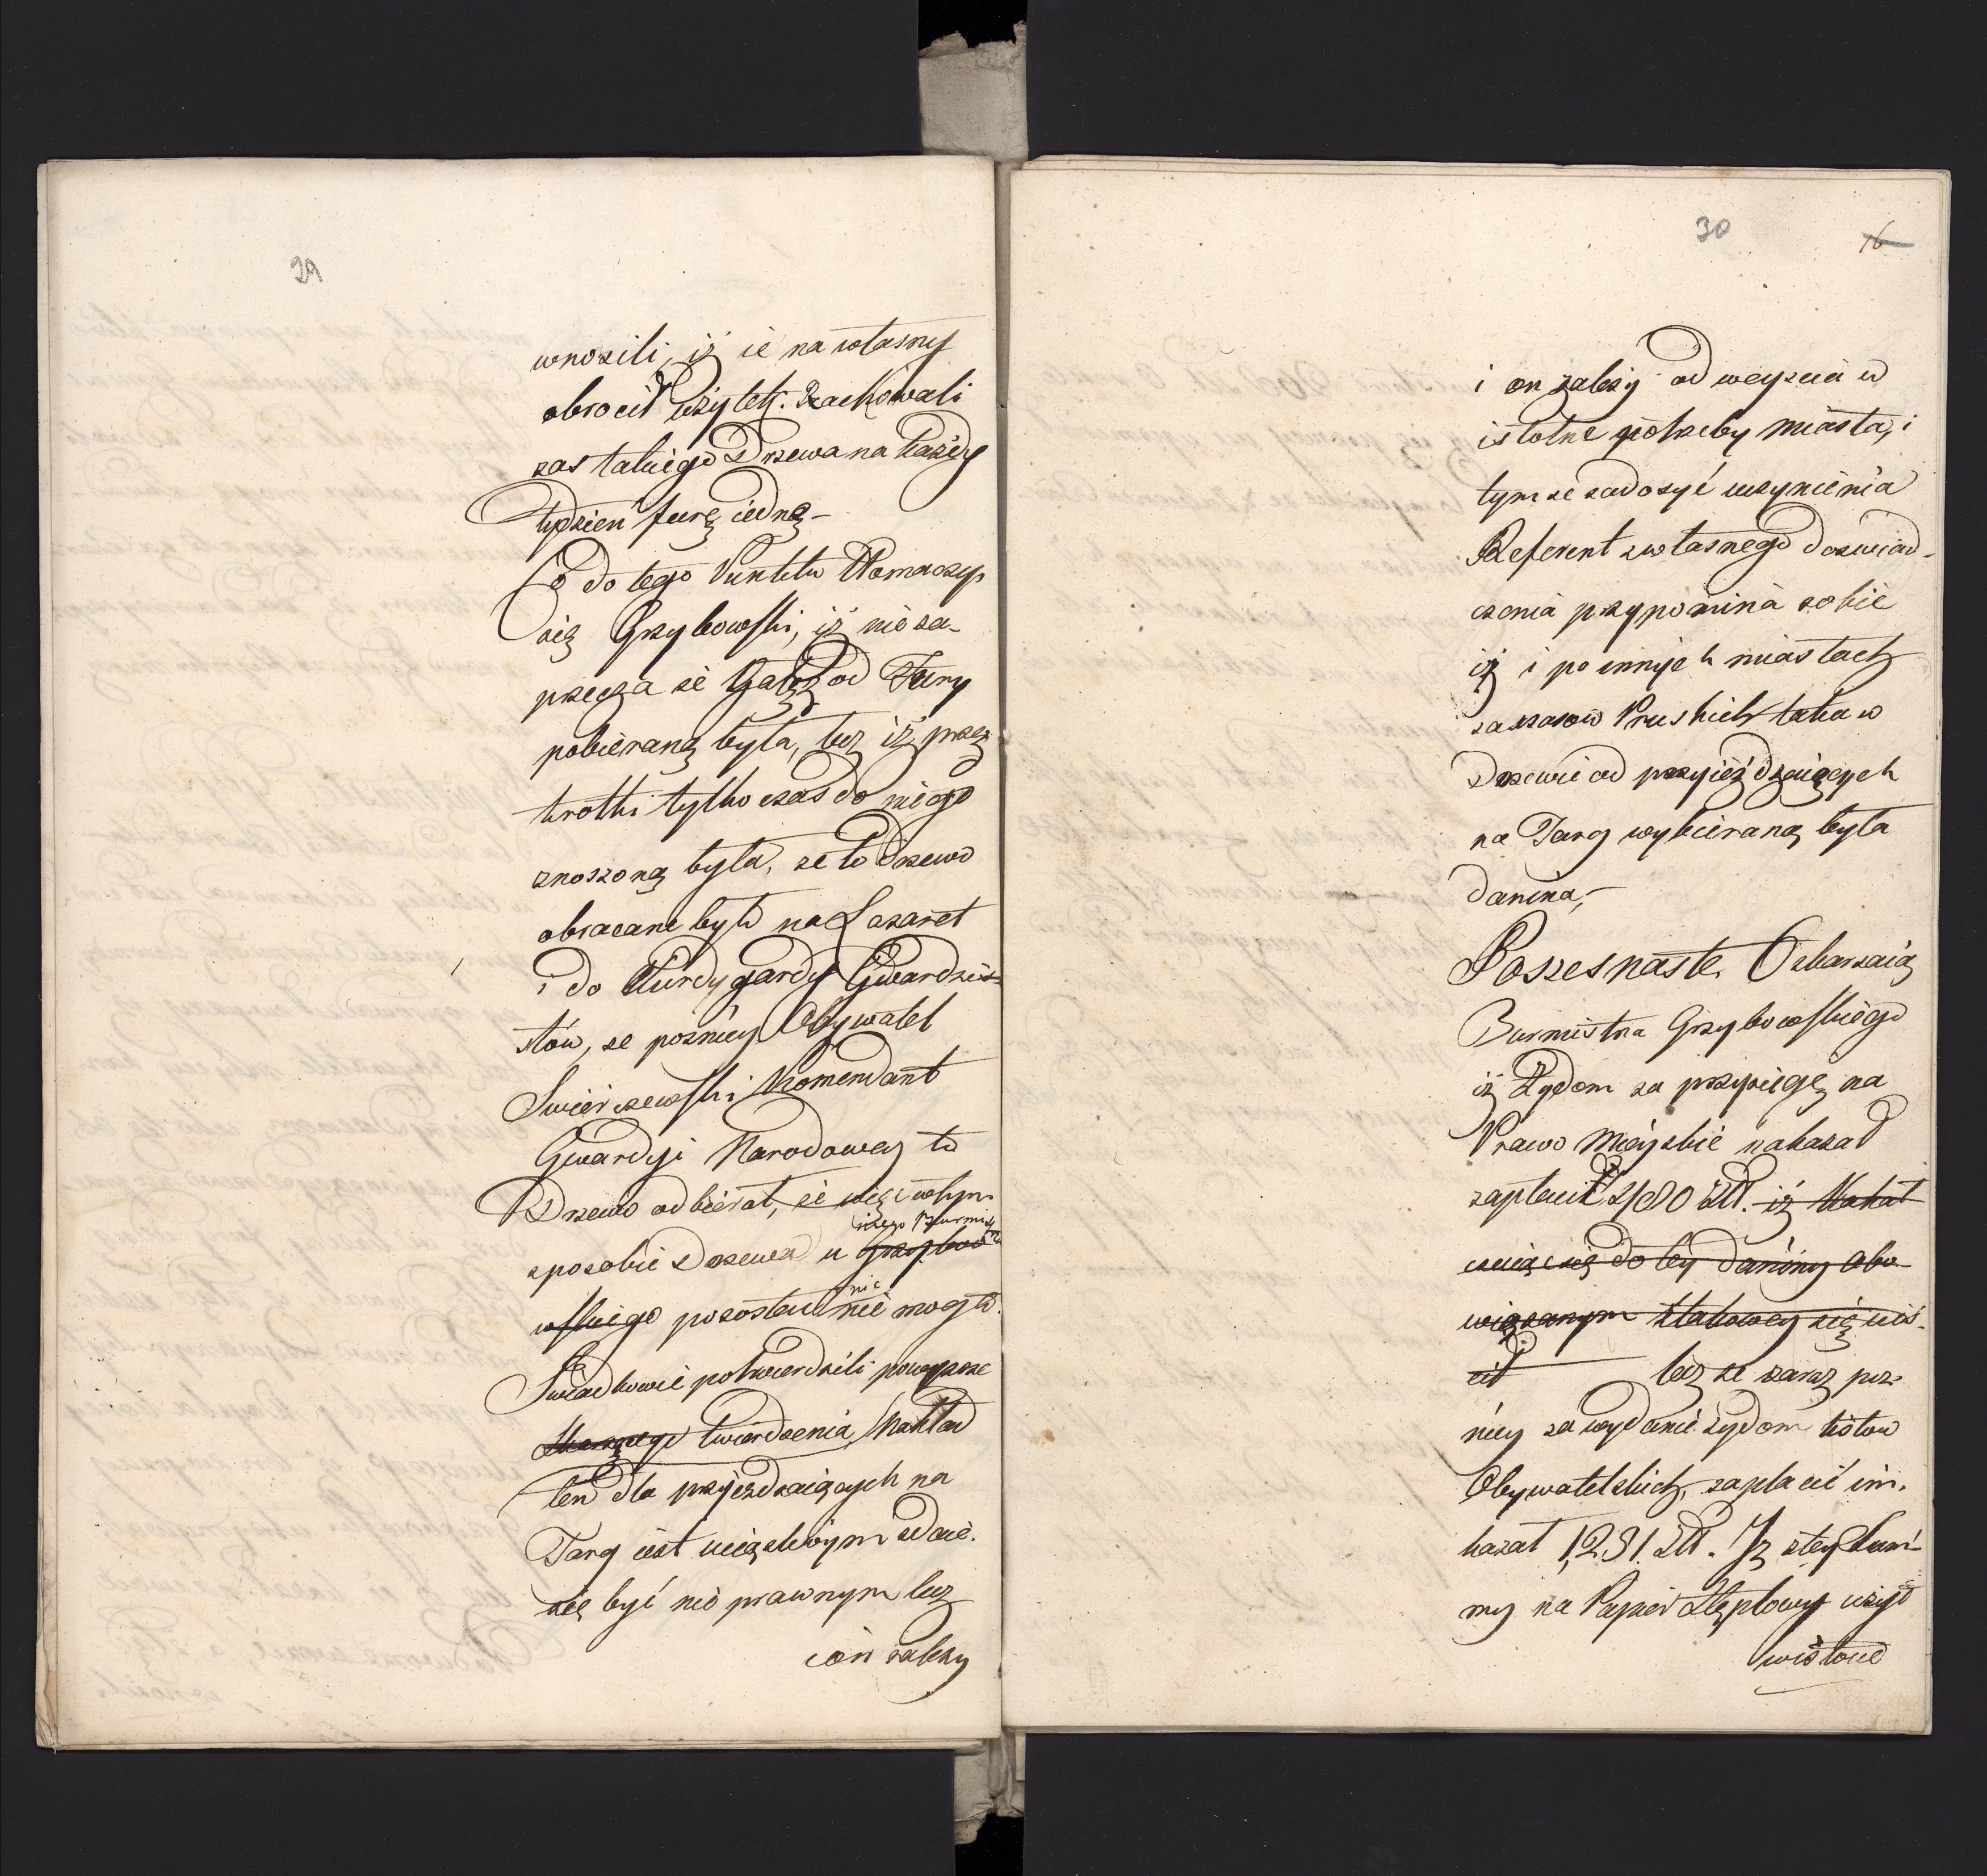 29
wnosili, iż ie na własny
obrocił użytek. Rachowali
zas takiego Drzewa na każdy
tydzień furę iedną –
Co do tego Punktu tłomaczy
się Grzybowski, iż nie za-
przecza że Gałąź od Fury
pobieraną była, lecz iż przez
krotki tylko czas do niego
znoszoną była, że to Drzewo
obracane było na Lazaret
i do Kurdygardy Gwardzis-
stów, że poźniey Obywatel
Swierczewski Komendant
Gwardyi Narodowey to
Drzewo odbierał, że więc w tym
sposobie Drzewa u Grzybow
iszego Burmistrza
wskiego pozostać nic nie mogło.
Swiadkowie potwierdzili powyższe
twierdzenia, Nakład
ten dla przyieżdzaiących na
Targ iest uciążliwym zdaie
się być nie prawnym lecz
i on zależy
30
16
i on zależy od weyścia w
istotne potrzeby miasta, i
tymże zadosyć uczynienia
Referent z własnego doswiad-
czenia przypomina sobie
iż i po innych miastach
za czasow Pruskich taka w
Drzewie od przyieżdzaiących
na Targ wybieraną była
danina, –
Poszesnaste. Oskarzaią
Burmistrza Grzybowskiego
iż Żydom za przysięgę na
Prawo Mieyskie nakazał
zapłacić 2/080 Zł. iż Kahał
do tey daniny obo-
wiązanym z takowey się uiś-
cił lecz że zaraz poź-
niey za wydanie żydom listow
Obywatelskich, zapłacić im.
kazał 1,231. Zł. Iż z tey Sum-
my na Papier Stęplowy użył